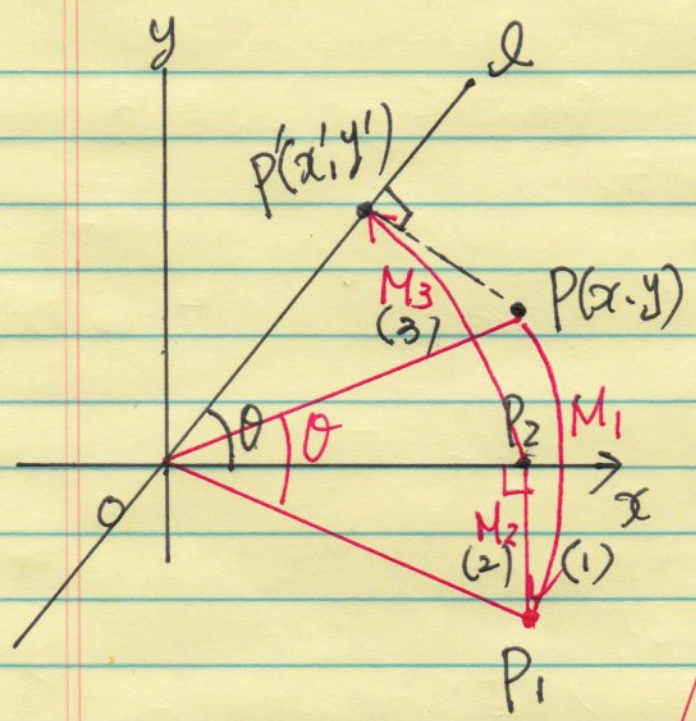 y
l
P'(x', y')
M3
(3)
P(x.y)
θ
θ
P2
M1
x
O
M2
(2)
(1)
P1